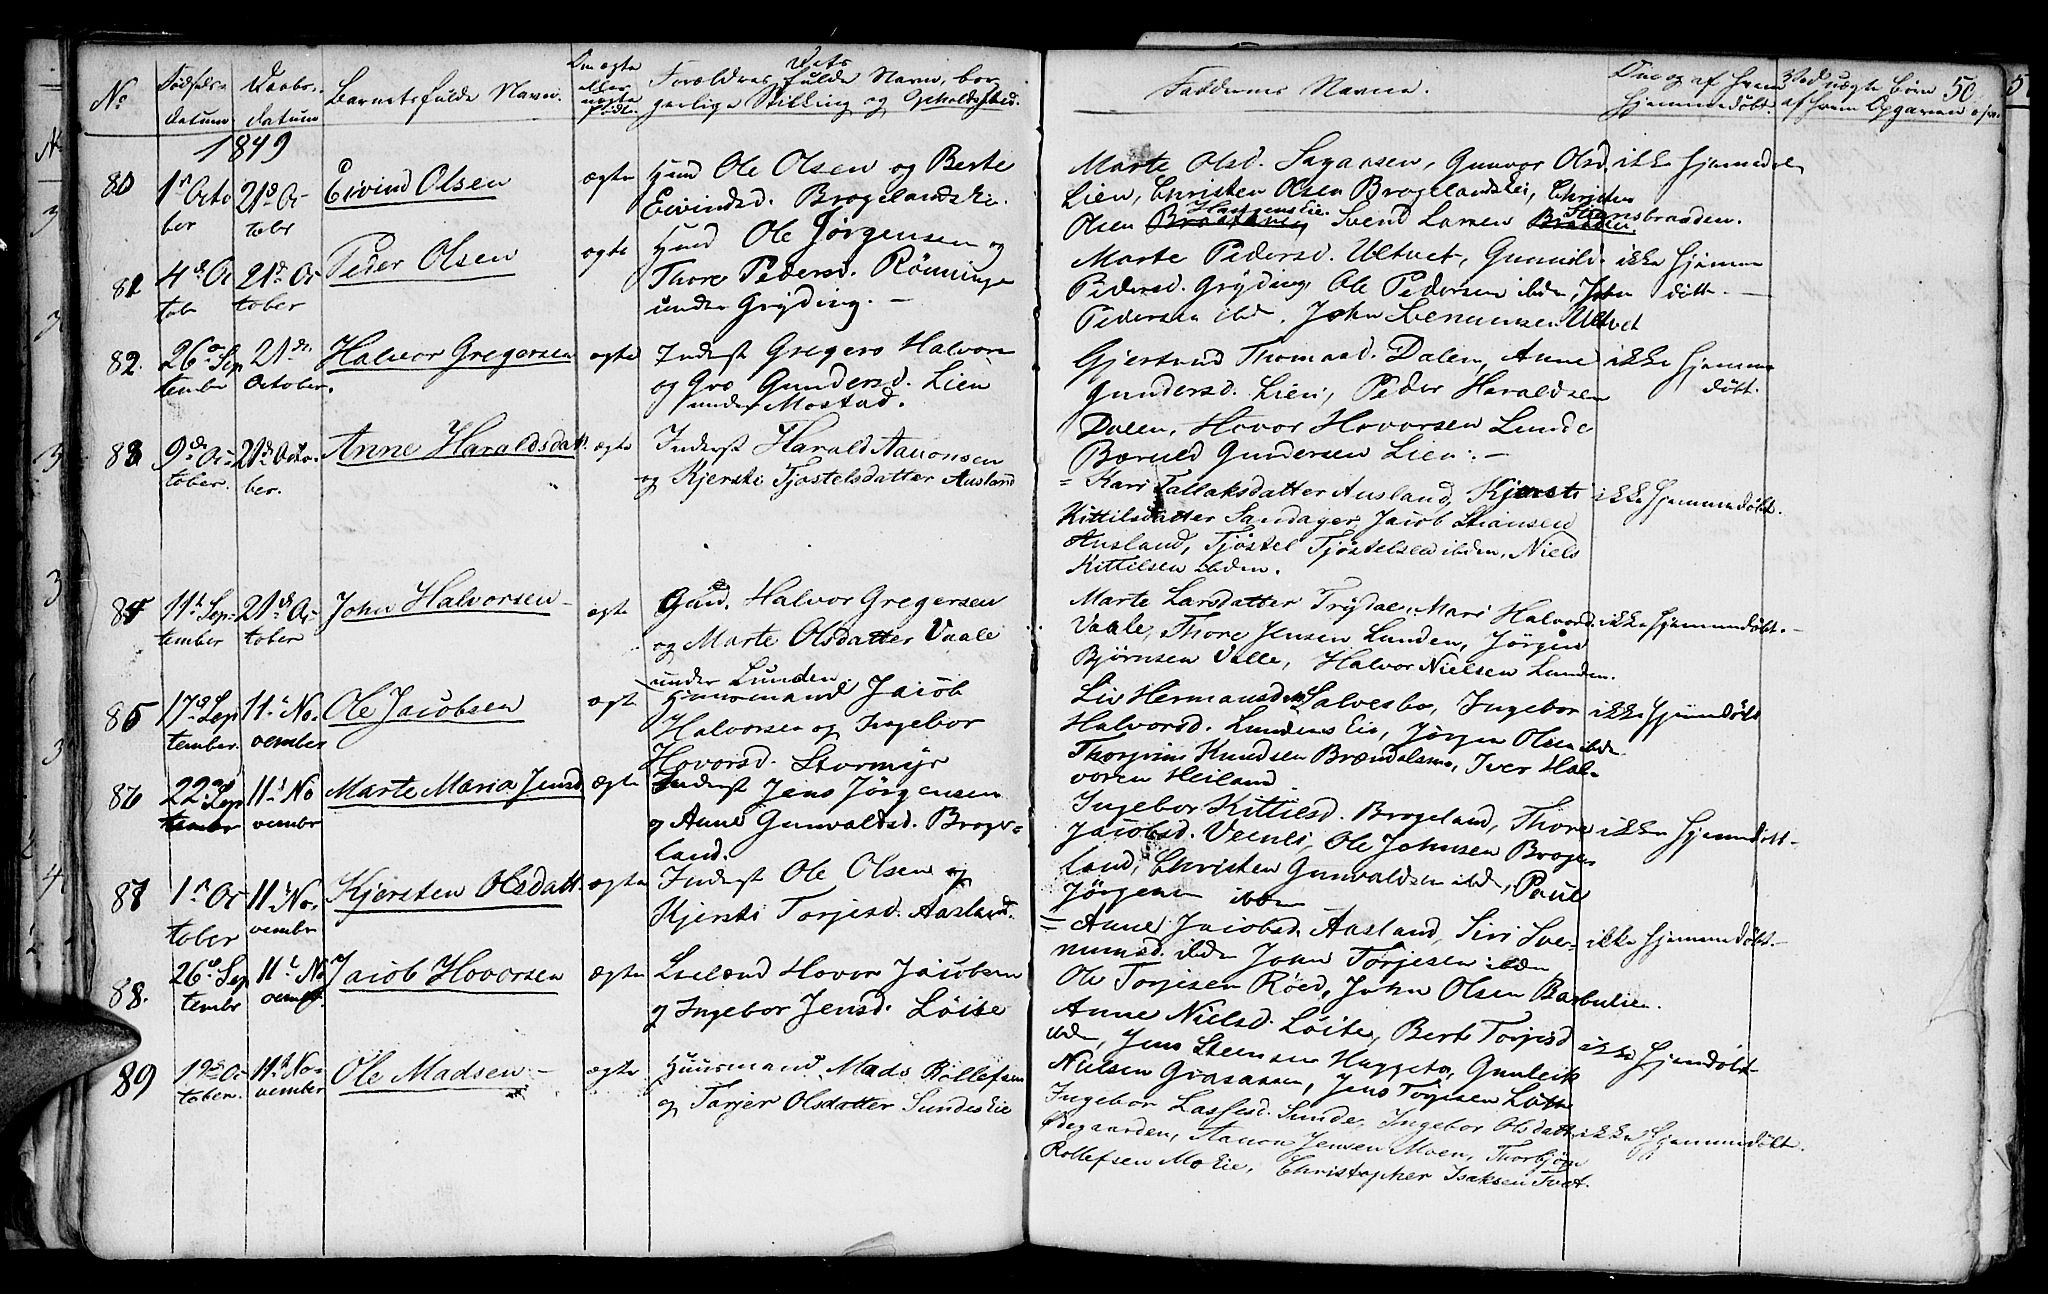 No
Fødsels-
datum
Daabs-
datum
Barnets fulde Navn.
Om ægte
eller
uægte
født.
Forældres fulde Navn, bor-
gerlige Stilling og Opholdssted.
Faddernes Navne.
Om og af hvem
hjemmedøbt.
Ved uægte børn
af hvem Opgaven
50
1849
80
1ste Octo
ber
21de Oc
tobr
Eivind Olsen
ægte
Huusmd Ole Olsen og Berte
Eivindsd. Brogelandseie.
Marte Olsd. Sagaasen, Gunvor Olsd.
Lien, Christen Olsen Brogelandseie, Christen
Olsen Haugenseie. Svend Larsen Stensbraaden.
ikke hjemmedøbt
81
4de Oc
tobr
21de Oc
tober
Peder Olsen
ægte
Huusmd Ole Jørgensen og
Thore Pedersd. Rønninge
under Gryding. —
Marte Pedersd. Ultvet, Gunnild
Pedersd. Gryding, Ole Pedersen ibdm, John
Pedersen ibd. John Svenumsen Ultvet
ikke hjemme
døbt. —
82.
26de Sep
tember
21de
October.
Halvor Gregersen
ægte
Inderst Gregers Halvors
og Gro Gundersd. Lien
under Mostad.
Gjertrud Thomasd. Dalen, Anne
Gundersd. Lien, Peder Haraldsen
Dalen, Hovor Hovorsen Lunde
Bæruld Gundersen Lien. —
ikke hjemme
døbt.
83
9de Oc-
tober.
21de Octo-
ber.
Anne Haraldsdatt.
ægte
Inderst Harald Aanonsen
og Kjersti Tjøstelsdatter Ausland
Kari Tallaksdatter Ausland, Kjersti
Kittilsdatter Sandager, Jacob Stiansen
Ausland, Tjøstel Tjøstelsen ibden, Niels
Kittilsen ibden.
ikke hjemmedøbt.
84
11te Sep-
tember
21de Oc-
tober
John Halvorsen
ægte
Gmd. Halvor Gregersen
og Marte Olsdatter Vaale
under Lunden
Marte Larsdatter Trydal, Mari Halvorsd.
Vaale, Thore Jensen Lunden, Jørgen
Bjørnsen Valle, Halvor Nielsen Lunden.
ikke hjemmedøbt. —
85
17de Sep
tember.
11te No-
vember
Ole Jacobsen
ægte
Huusmand Jacob
Halvorsen og Ingebor
Hovorsd. Stormyr
Liv Hermansd. Salvesbo, Ingebor
Halvorsd. Lundens Eie, Jørgen Olsen ibdm
Thorgrim Knudsen Brændalsmo, Iver Hal-
vorsen Heiland.
ikke hjemdøbt
86
22de Sep
tember
11te No
vembr
Marte Maria Jensd.
ægte
Inderst Jens Jørgensen
og Anne Gunvaldsd. Broge-
land.
Ingebor Kittilsd. Brogeland, Thore
Jacobsd. Veenli, Ole Johnsen Broge
land, Christen Gunvaldsen ibdm, Poul
Jørgensen ibdm
ikke hjemmdøbt —
87
1ste Oc
tober
11te No-
vembr
Kjersten Olsdatt.
ægte
Inderst Ole Olsen og
Kjersti Torjesd. Aasland.
Anne Jacobsd. Ausland, Siri Sve-
numsd. ibdm John Torjesen ibdm
Ole Torjesen Røed, John Olsen Barbulien.
ikke hjemmedøbt. —
88.
26de Sep
tembr
11te No
vembr.
Jacob Hovorsen
ægte
Leiland Hovor Jacobsen
og Ingebor Jensd. Løite
Anne Nielsd. Løite, Berte Torjesd
ibdm, Jens Steensen Huggeto, Gunleik
Nielsen Graaaasen, Jens Torjesen Løite
ikke hjemdøbt —
89
19de Oc
tober.
11te No-
vember
Ole Madsen —
ægte
Huusmand Mads Rollefsen
og Tarjer Olsdatter Sundes Eie
Ingebor Lassesd. Sunde, Ingebor Olsdatter
Ødegaarden, Aanon Jensen Moen, Thorbjørn
Rollefsen Mo Eie, Christopher Isaksen Tvet.
ikke hjemmedøbt.